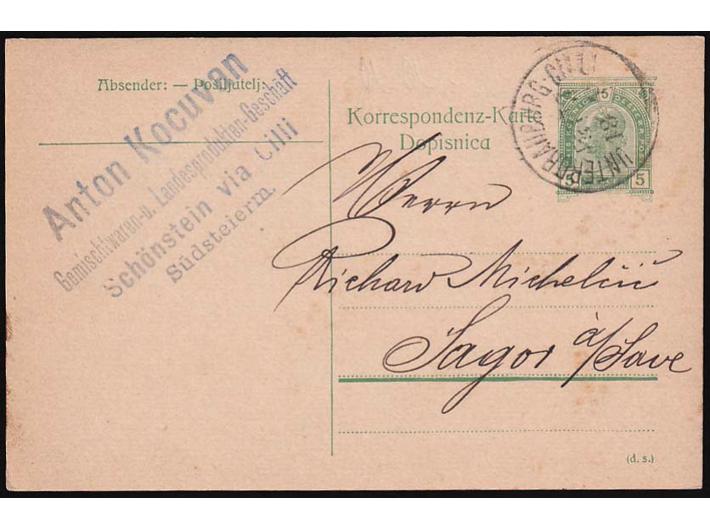 Absender: — Pošiljatelj:
Anton Kocuvan
Gemischtwaren-u. Landesprodukten-Geschäft
Schönstein via Cilli
Südsteierm.
Korrespondenz-Karte
Dopisnica
UNTERDRAUBURG-CILLI
5
5
Herrn
Richard Michelčič
Sagor a/Save
(d. s.)